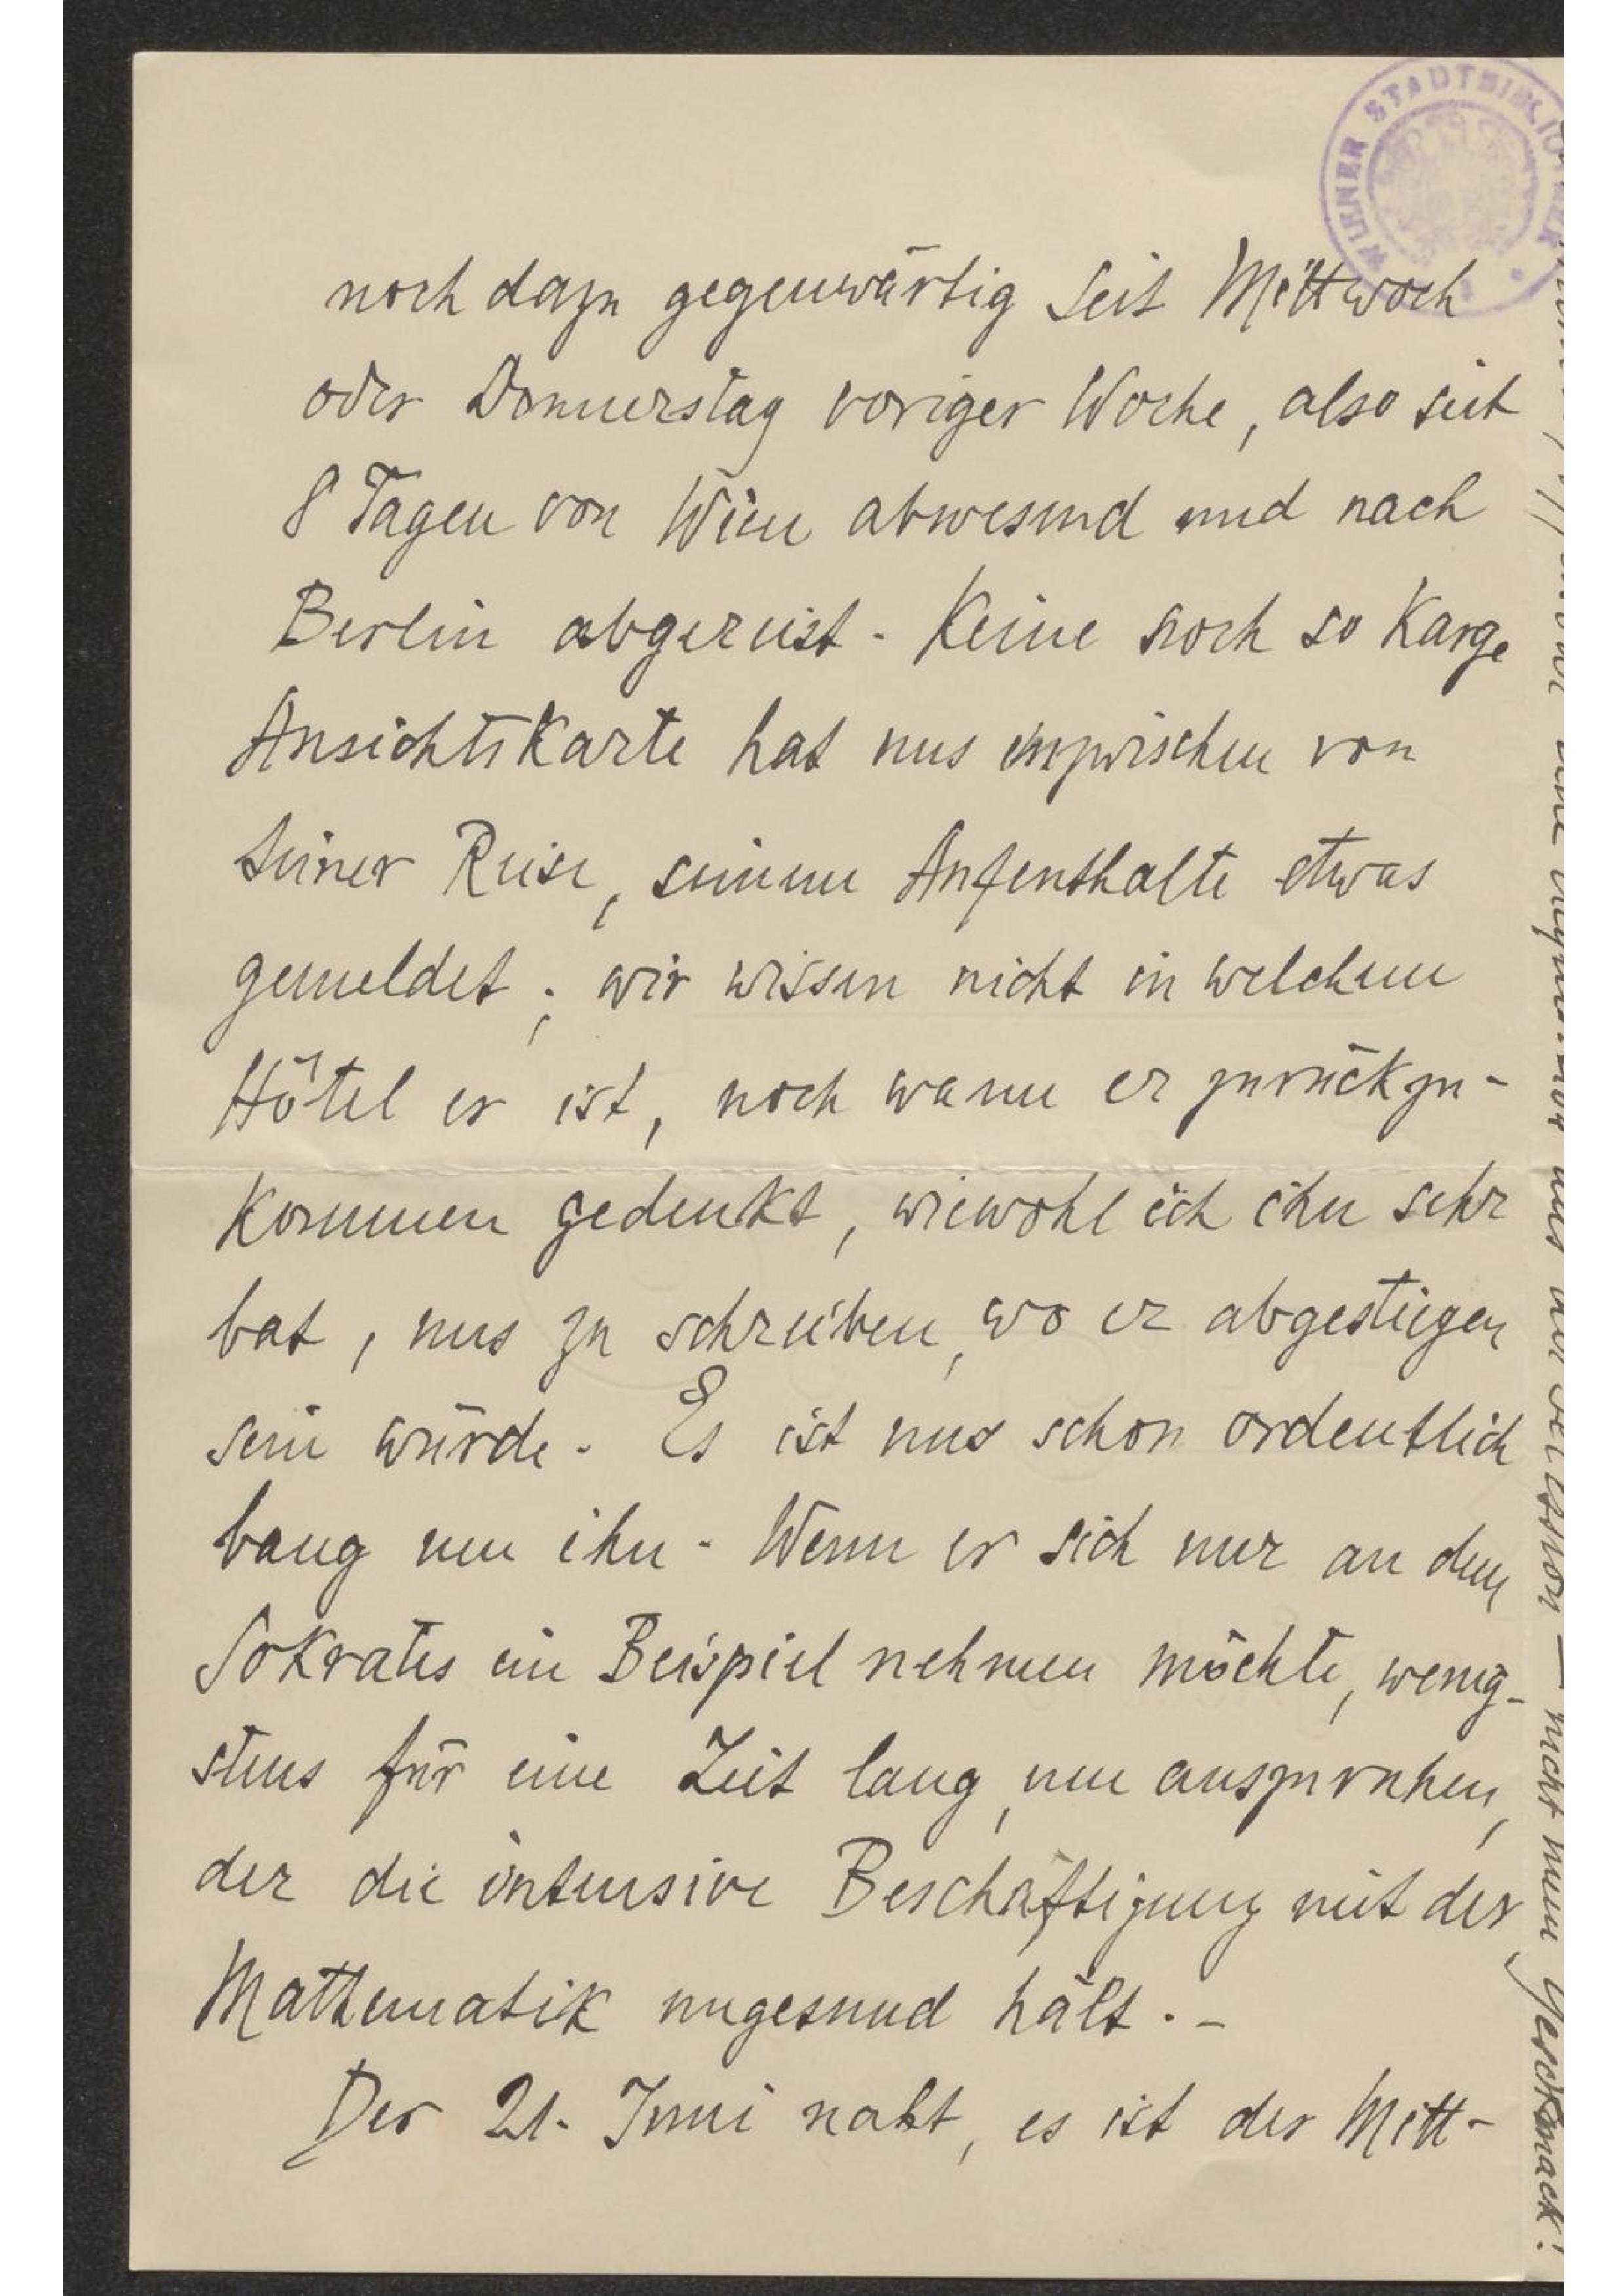 WIENER STADTBIBLIOTHEK
noch dazu gegenwärtig seit Mittwoch
oder Donnerstag voriger Woche, also seit
8 Tagen von Wien abwesend und nach
Berlin abgereist. Keine noch so karge
Ansichtskarte hat uns inzwischen von
seiner Reise, seinem Aufenthalte etwas
gemeldet; wir wissen nicht in welchem
Hôtel er ist, noch wann er zurückzu-
kommen gedenkt, wiewohl ich ihn sehr
bat, uns zu schreiben, wo er abgestiegen
sein würde. Es ist uns schon ordentlich
bang um ihn. Wenn er sich nur an dem
Sokrates ein Beispiel nehmen möchte, wenig-
stens für eine Zeit lang, um auszuruhen,
der die intensive Beschäftigung mit der
Mathematik ungesund hält. -
Der 21. Juni naht, es ist der Mitt-
— nicht mein Geschmack!